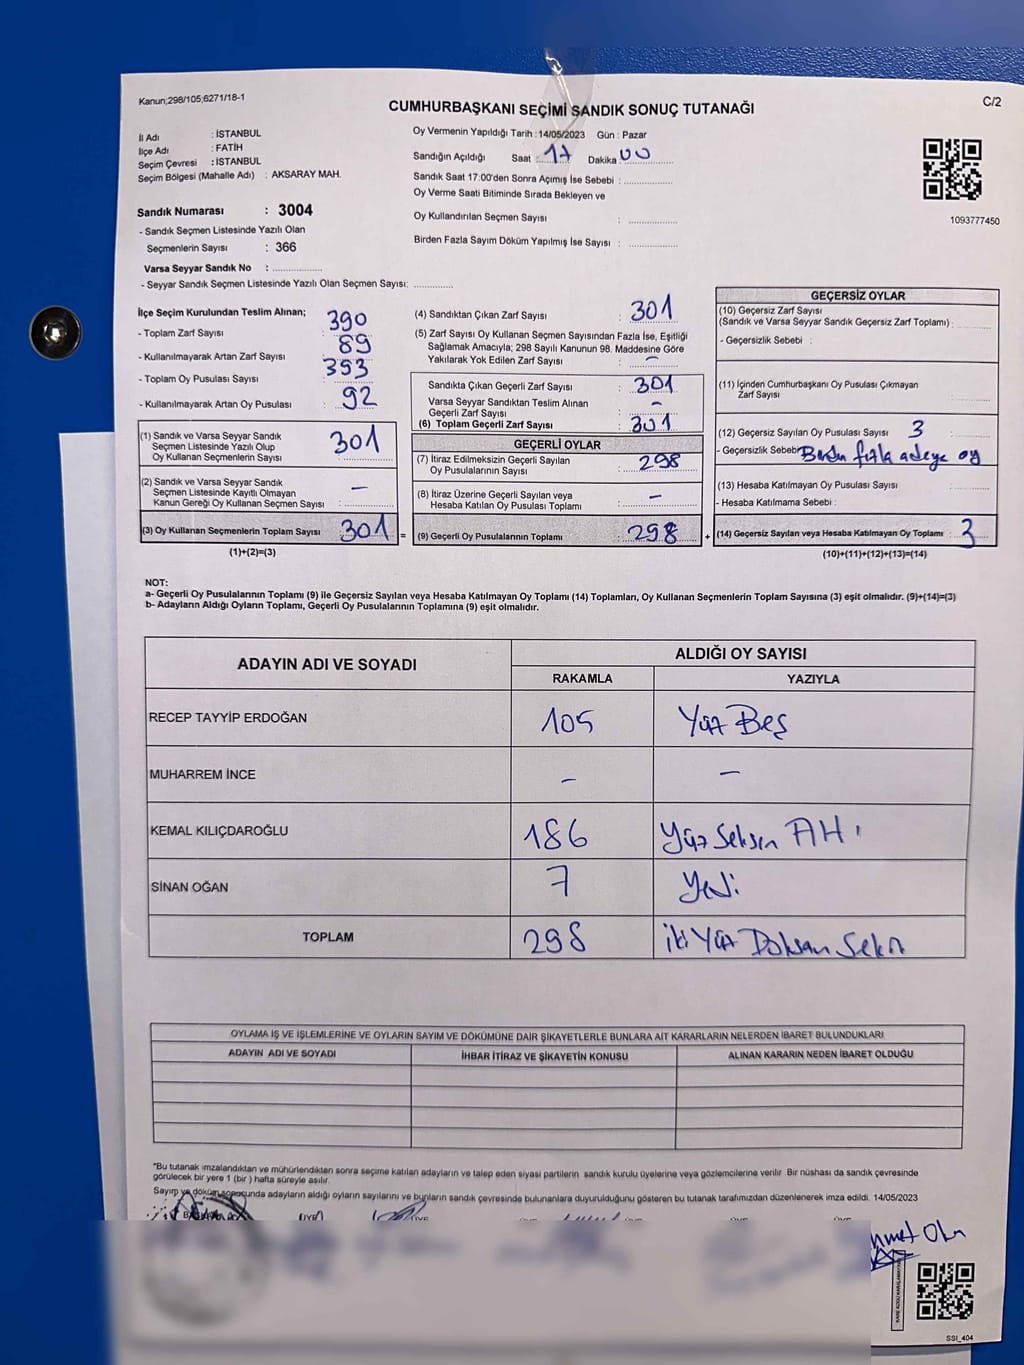 Kanun;298/105;6271/18-1
CUMHURBAŞKANI SEÇİMİ SANDIK SONUÇ TUTANAĞI
C/2
İl Adı : İSTANBUL
İlçe Adı : FATİH
Seçim Çevresi : İSTANBUL
Seçim Bölgesi (Mahalle Adı) : AKSARAY MAH.
Sandık Numarası : 3004
- Sandık Seçmen Listesinde Yazılı Olan
Seçmenlerin Sayısı : 366
Varsa Seyyar Sandık No : ....................
- Seyyar Sandık Seçmen Listesinde Yazılı Olan Seçmen Sayısı: ...............
Oy Vermenin Yapıldığı Tarih : 14/05/2023 Gün : Pazar
Sandığın Açıldığı Saat : 17 Dakika 00
Sandık Saat 17:00'den Sonra Açımış İse Sebebi : ....................
Oy Verme Saati Bitiminde Sırada Bekleyen ve
Oy Kullandırılan Seçmen Sayısı : ....................
Birden Fazla Sayım Döküm Yapılmış İse Sayısı : ....................
1093777450
İlçe Seçim Kurulundan Teslim Alınan;
- Toplam Zarf Sayısı : 390
- Kullanılmayarak Artan Zarf Sayısı : 89
- Toplam Oy Pusulası Sayısı : 393
- Kullanılmayarak Artan Oy Pusulası : 92
(1) Sandık ve Varsa Seyyar Sandık
Seçmen Listesinde Yazılı Olup
Oy Kullanan Seçmenlerin Sayısı : 301
(2) Sandık ve Varsa Seyyar Sandık
Seçmen Listesinde Kayıtlı Olmayan
Kanun Gereği Oy Kullanan Seçmen Sayısı : -
(3) Oy Kullanan Seçmenlerin Toplam Sayısı : 301 =
(1)+(2)=(3)
(4) Sandıktan Çıkan Zarf Sayısı : 301
(5) Zarf Sayısı Oy Kullanan Seçmen Sayısından Fazla İse, Eşitliği
Sağlamak Amacıyla; 298 Sayılı Kanunun 98. Maddesine Göre
Yakılarak Yok Edilen Zarf Sayısı : -
Sandıkta Çıkan Geçerli Zarf Sayısı : 301
Varsa Seyyar Sandıktan Teslim Alınan
Geçerli Zarf Sayısı : -
(6) Toplam Geçerli Zarf Sayısı : 301
GEÇERLİ OYLAR
(7) İtiraz Edilmeksizin Geçerli Sayılan
Oy Pusulalarının Sayısı : 298
(8) İtiraz Üzerine Geçerli Sayılan veya
Hesaba Katılan Oy Pusulası Toplamı : -
(9) Geçerli Oy Pusulalarının Toplamı : 298 +
GEÇERSİZ OYLAR
(10) Geçersiz Zarf Sayısı
(Sandık ve Varsa Seyyar Sandık Geçersiz Zarf Toplamı) :
- Geçersizlik Sebebi :
(11) İçinden Cumhurbaşkanı Oy Pusulası Çıkmayan
Zarf Sayısı :
(12) Geçersiz Sayılan Oy Pusulası Sayısı 3
- Geçersizlik Sebebi Birden fazla adaya oy
(13) Hesaba Katılmayan Oy Pusulası Sayısı :
- Hesaba Katılmama Sebebi :
(14) Geçersiz Sayılan veya Hesaba Katılmayan Oy Toplamı : 3
(10)+(11)+(12)+(13)=(14)
NOT:
a- Geçerli Oy Pusulalarının Toplamı (9) ile Geçersiz Sayılan veya Hesaba Katılmayan Oy Toplamı (14) Toplamları, Oy Kullanan Seçmenlerin Toplam Sayısına (3) eşit olmalıdır. (9)+(14)=(3)
b- Adayların Aldığı Oyların Toplamı, Geçerli Oy Pusulalarının Toplamına (9) eşit olmalıdır.
ADAYIN ADI VE SOYADI
ALDIĞI OY SAYISI
RAKAMLA YAZIYLA
RECEP TAYYİP ERDOĞAN 105 Yüz Beş
MUHARREM İNCE - -
KEMAL KILIÇDAROĞLU 186 Yüz Seksen Altı
SİNAN OĞAN 7 Yedi
TOPLAM 298 İki Yüz Doksan Sekiz
OYLAMA İŞ VE İŞLEMLERİNE VE OYLARIN SAYIM VE DÖKÜMÜNE DAİR ŞİKAYETLERLE BUNLARA AİT KARARLARIN NELERDEN İBARET BULUNDUKLARI
ADAYIN ADI VE SOYADI İHBAR İTİRAZ VE ŞİKAYETİN KONUSU ALINAN KARARIN NEDEN İBARET OLDUĞU
*Bu tutanak imzalandıktan ve mühürlendikten sonra seçime katılan adayların ve talep eden siyasi partilerin sandık kurulu üyelerine veya gözlemcilerine verilir. Bir nüshası da sandık çevresinde
görülecek bir yere 1 (bir) hafta süreyle asılır.
Sayım ve döküm sonucunda adayların aldığı oyların sayılarını ve bunların sandık çevresinde bulunanlara duyurulduğunu gösteren bu tutanak tarafımızdan düzenlenerek imza edildi. 14/05/2023
BAŞKAN ÜYE ÜYE ÜYE ÜYE ÜYE
SSI_404